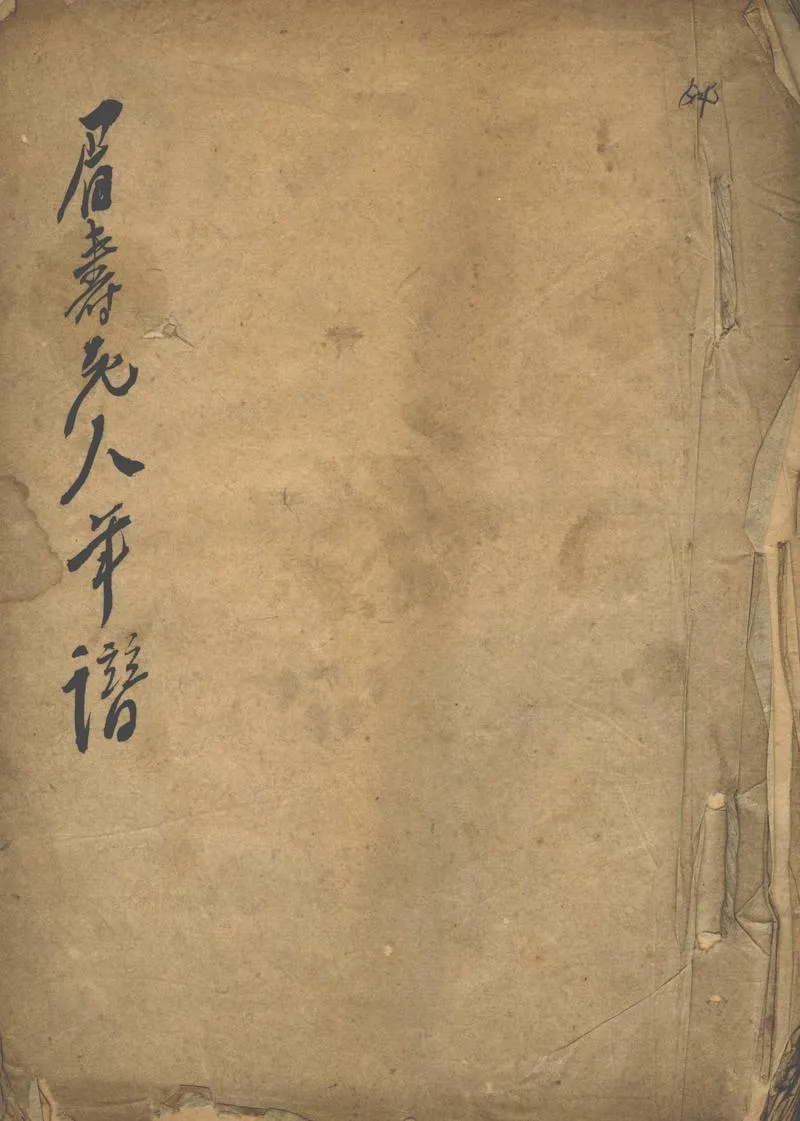 眉壽老人年譜
64